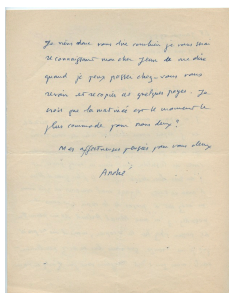 Je viens donc vous dire combien je vous serai
reconnaissant mon cher Jean de me dire
quand je peux passer chez vous vous
revoir et recopier ces quelques pages. Je
crois que la matinée est le moment le
plus commode pour nous deux ?
Mes affectueuses pensées pour vous deux
André